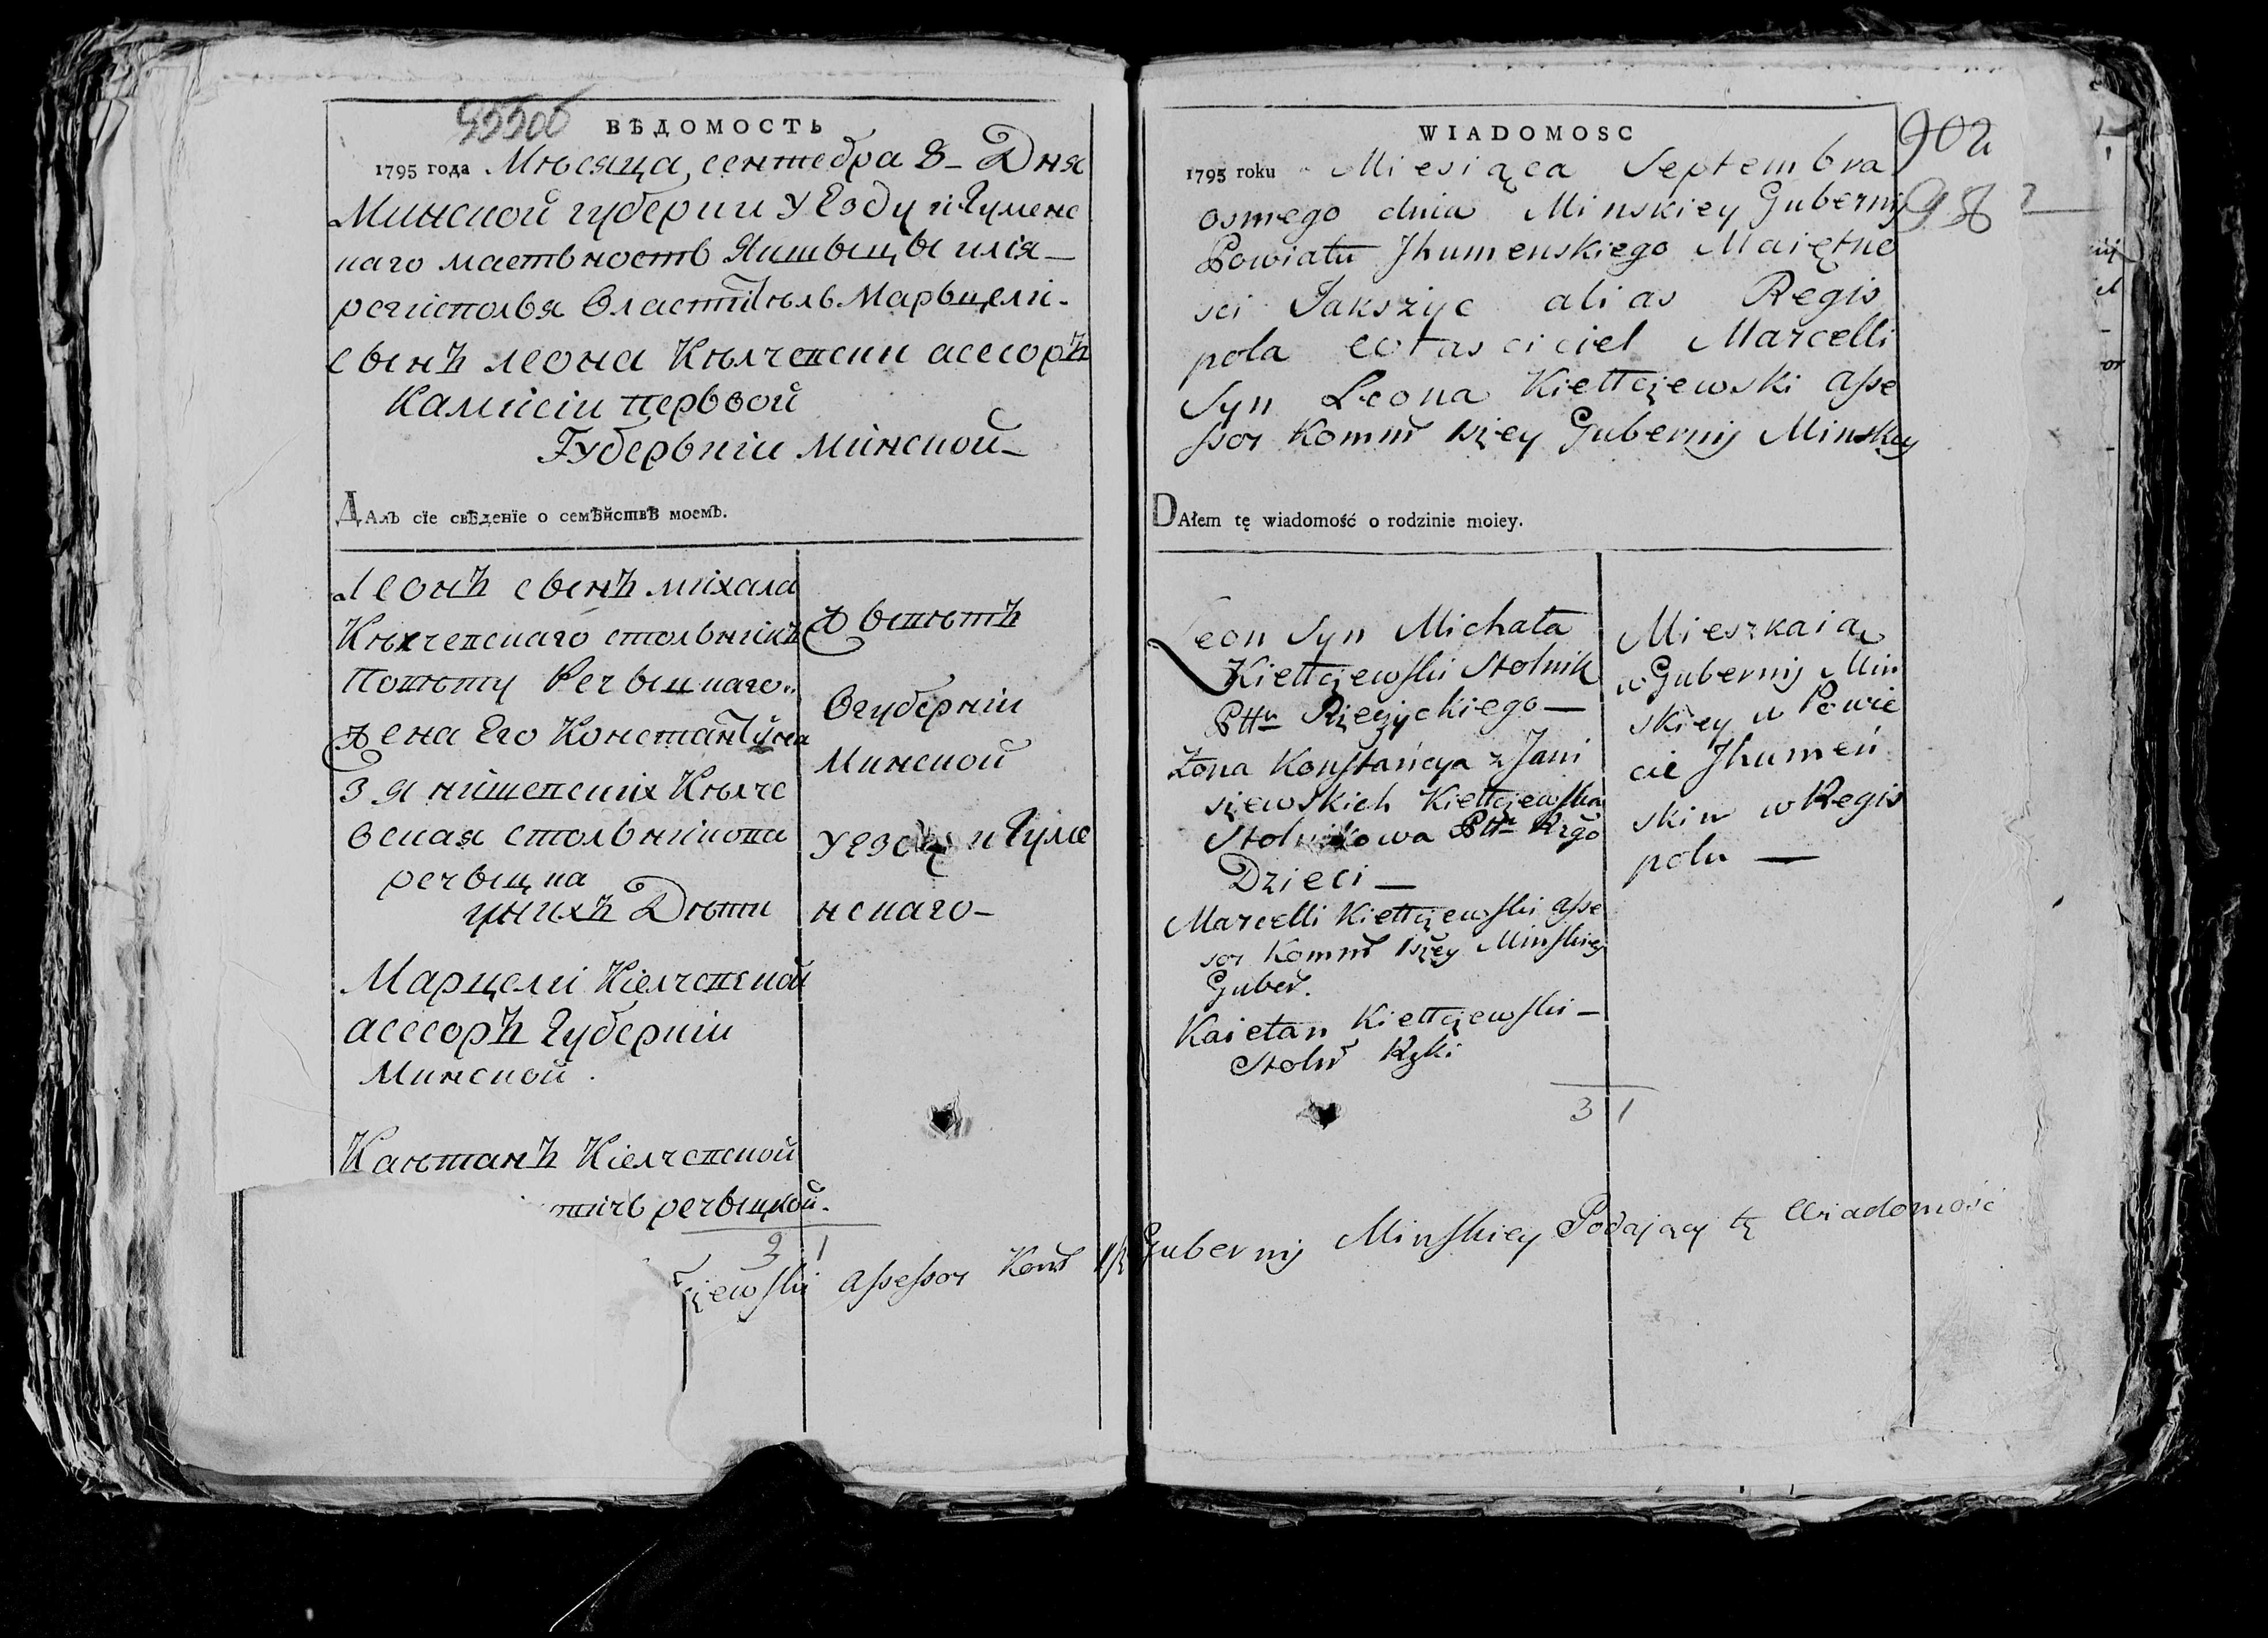 ВѢДОМОСТЬ
1795 года Мѣсяца, сентебра 8 - Дня
Минской губернии уЕзду игумене
каго маетьность Якшыцы илія -
регисполья властитѣль Марьцели -
сынъ леона Кѣлчевски асесоръ
Камисіи первой
Губерьніи минской -
ДАлъ сїе свѣденїе о семѣйствѣ моемъ.
Леонъ сынъ михала
Кѣлчевскаго стольникъ
Повѣту Речыцкаго..
жена Его Константыя
З янишевских Кѣлче
вская стольникова
речыцка
уних Дѣти
Марцели Кіелчевской
асесоръ губерніи
Минской.
Каѣтанъ Кіелчевской
речыцкой.
3 1
живѣтъ
вгуберніи
Минской
уЕзду игуме
нскаго -
WIADOMOSC
902
98
1795 roku Miesiąca Septembra
osmego dnia Minskiey Gubernij
Powiatu Jhumenskiego Maiętno
sci Jakszyc alias Regis
pola włas ciciel Marcelli
Syn Leona Kiełłczewski asse
ssor Komm̃ Iszey Gubernij Minskiey
DAłem tę wiadomość o rodzinie moiey.
Leon Syn Michała
Kiełłczewski Stolnik
Pttu Rzeżyckiego -
Żona Konstańcya z Jani
szewskich Kiełłczewska
Stolnikowa Pttu Rzgo
Dzieci -
Marcelli Kiełłczewski asse
sor Komm̃ Iszey Minskiey
Guber̃.
Kaietan Kiełłczewski -
Stoln̆ Rzki
3 1
Mieszkaią
w Gubernij Min
skiey w Powie
cie Jhumeń
skim w Regis
polu -
czewski assessor Kom̃ Gubernij Minskiey Podający tę Wiadomość